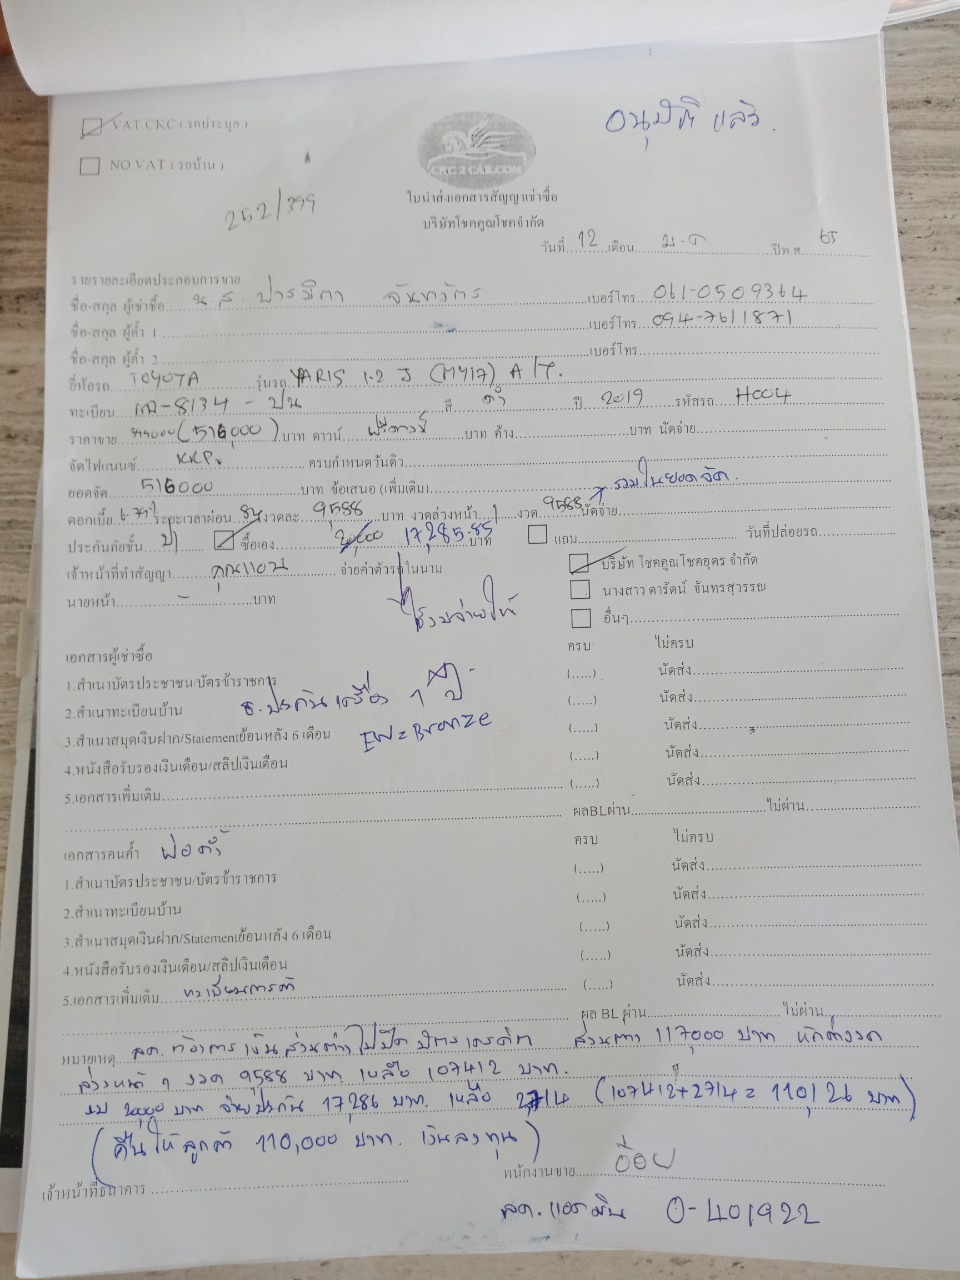 อนุมัติ แล้ว.
VAT CKC ( รถประมูล )
NO VAT ( รถบ้าน )
CKC2CAR.COM
252/399
ใบนำส่งเอกสารสัญญาเช่าซื้อ
บริษัทโชคคูณโชคจำกัด
วันที่ 12 เดือน ม.ค ปีพ.ศ. 65
รายรายละเอียดประกอบการขาย
ชื่อ-สกุล ผู้เช่าซื้อ น.ส. ปารมิตา จันทวัทร เบอร์โทร 061-0509364
ชื่อ-สกุล ผู้ค้ำ 1 เบอร์โทร 094-7611871
ชื่อ-สกุล ผู้ค้ำ 2 เบอร์โทร
ยี่ห้อรถ TOYOTA รุ่นรถ YARIS 1.2 J (MY17) A/T.
ทะเบียน -8134 - ปน สี ดำ ปี 2019 รหัสรถ H004
ราคาขาย 399000 (516,000) บาท ดาวน์ ฟรีดาวน์ บาท ค้าง บาท นัดจ่าย
จัดไฟแนนซ์ KKP. ครบกำหนดวันคิว
ยอดจัด 516000 บาท ข้อเสนอ (เพิ่มเติม) รวมในยอดจัด.
ดอกเบี้ย ระยะเวลาผ่อน 84 งวดละ 9,588 บาท งวดล่วงหน้า 1 งวด 9588 นัดจ่าย
ประกันภัยชั้น ป1 ซื้อเอง 20,000 17,285.85 บาท แถม วันที่ปล่อยรถ
เจ้าหน้าที่ทำสัญญา คุณแอน จ่ายค่าตัวรถในนาม บริษัท โชคคูณโชคอุดร จำกัด
นายหน้า - บาท นางสาว ดารัตน์ จันทรสุวรรณ
โชว์รูมจ่ายให้ อื่นๆ
เอกสารผู้เช่าซื้อ ครบ ไม่ครบ
1.สำเนาบัตรประชาชน/บัตรข้าราชการ (.....) นัดส่ง
2.สำเนาทะเบียนบ้าน ประกันเครื่อง 1 ปี (.....) นัดส่ง
3.สำเนาสมุดเงินฝาก/Statementย้อนหลัง 6 เดือน EW = Bronze (.....) นัดส่ง
4.หนังสือรับรองเงินเดือน/สลิปเงินเดือน (.....) นัดส่ง
5.เอกสารเพิ่มเติม (.....) นัดส่ง
ผลBLผ่าน ไม่ผ่าน
เอกสารคนค้ำ พ่อค้ำ ครบ ไม่ครบ
1.สำเนาบัตรประชาชน/บัตรข้าราชการ (.....) นัดส่ง
2.สำเนาทะเบียนบ้าน (.....) นัดส่ง
3.สำเนาสมุดเงินฝาก/Statementย้อนหลัง 6 เดือน (.....) นัดส่ง
4.หนังสือรับรองเงินเดือน/สลิปเงินเดือน (.....) นัดส่ง
5.เอกสารเพิ่มเติม ทะเบียนการค้า (.....) นัดส่ง
ผล BL ผ่าน ไม่ผ่าน
หมายเหตุ ลค. ต้องการ เงินส่วนต่าง ไปปิด บัตรเครดิต ส่วนต่าง 117,000 บาท หักค่างวด
ล่วงหน้า 1 งวด 9,588 บาท. เหลือ 107,412 บาท.
งบ 20,000 บาท จ่ายประกัน 17,286 บาท. เหลือ 2,714 (107,412+2,714 = 110,126 บาท)
(คืนให้ลูกค้า 110,000 บาท. เงินลงทุน)
พนักงานขาย อ้อย
เจ้าหน้าที่ธนาคาร
ลค. แอดมิน 0-401922